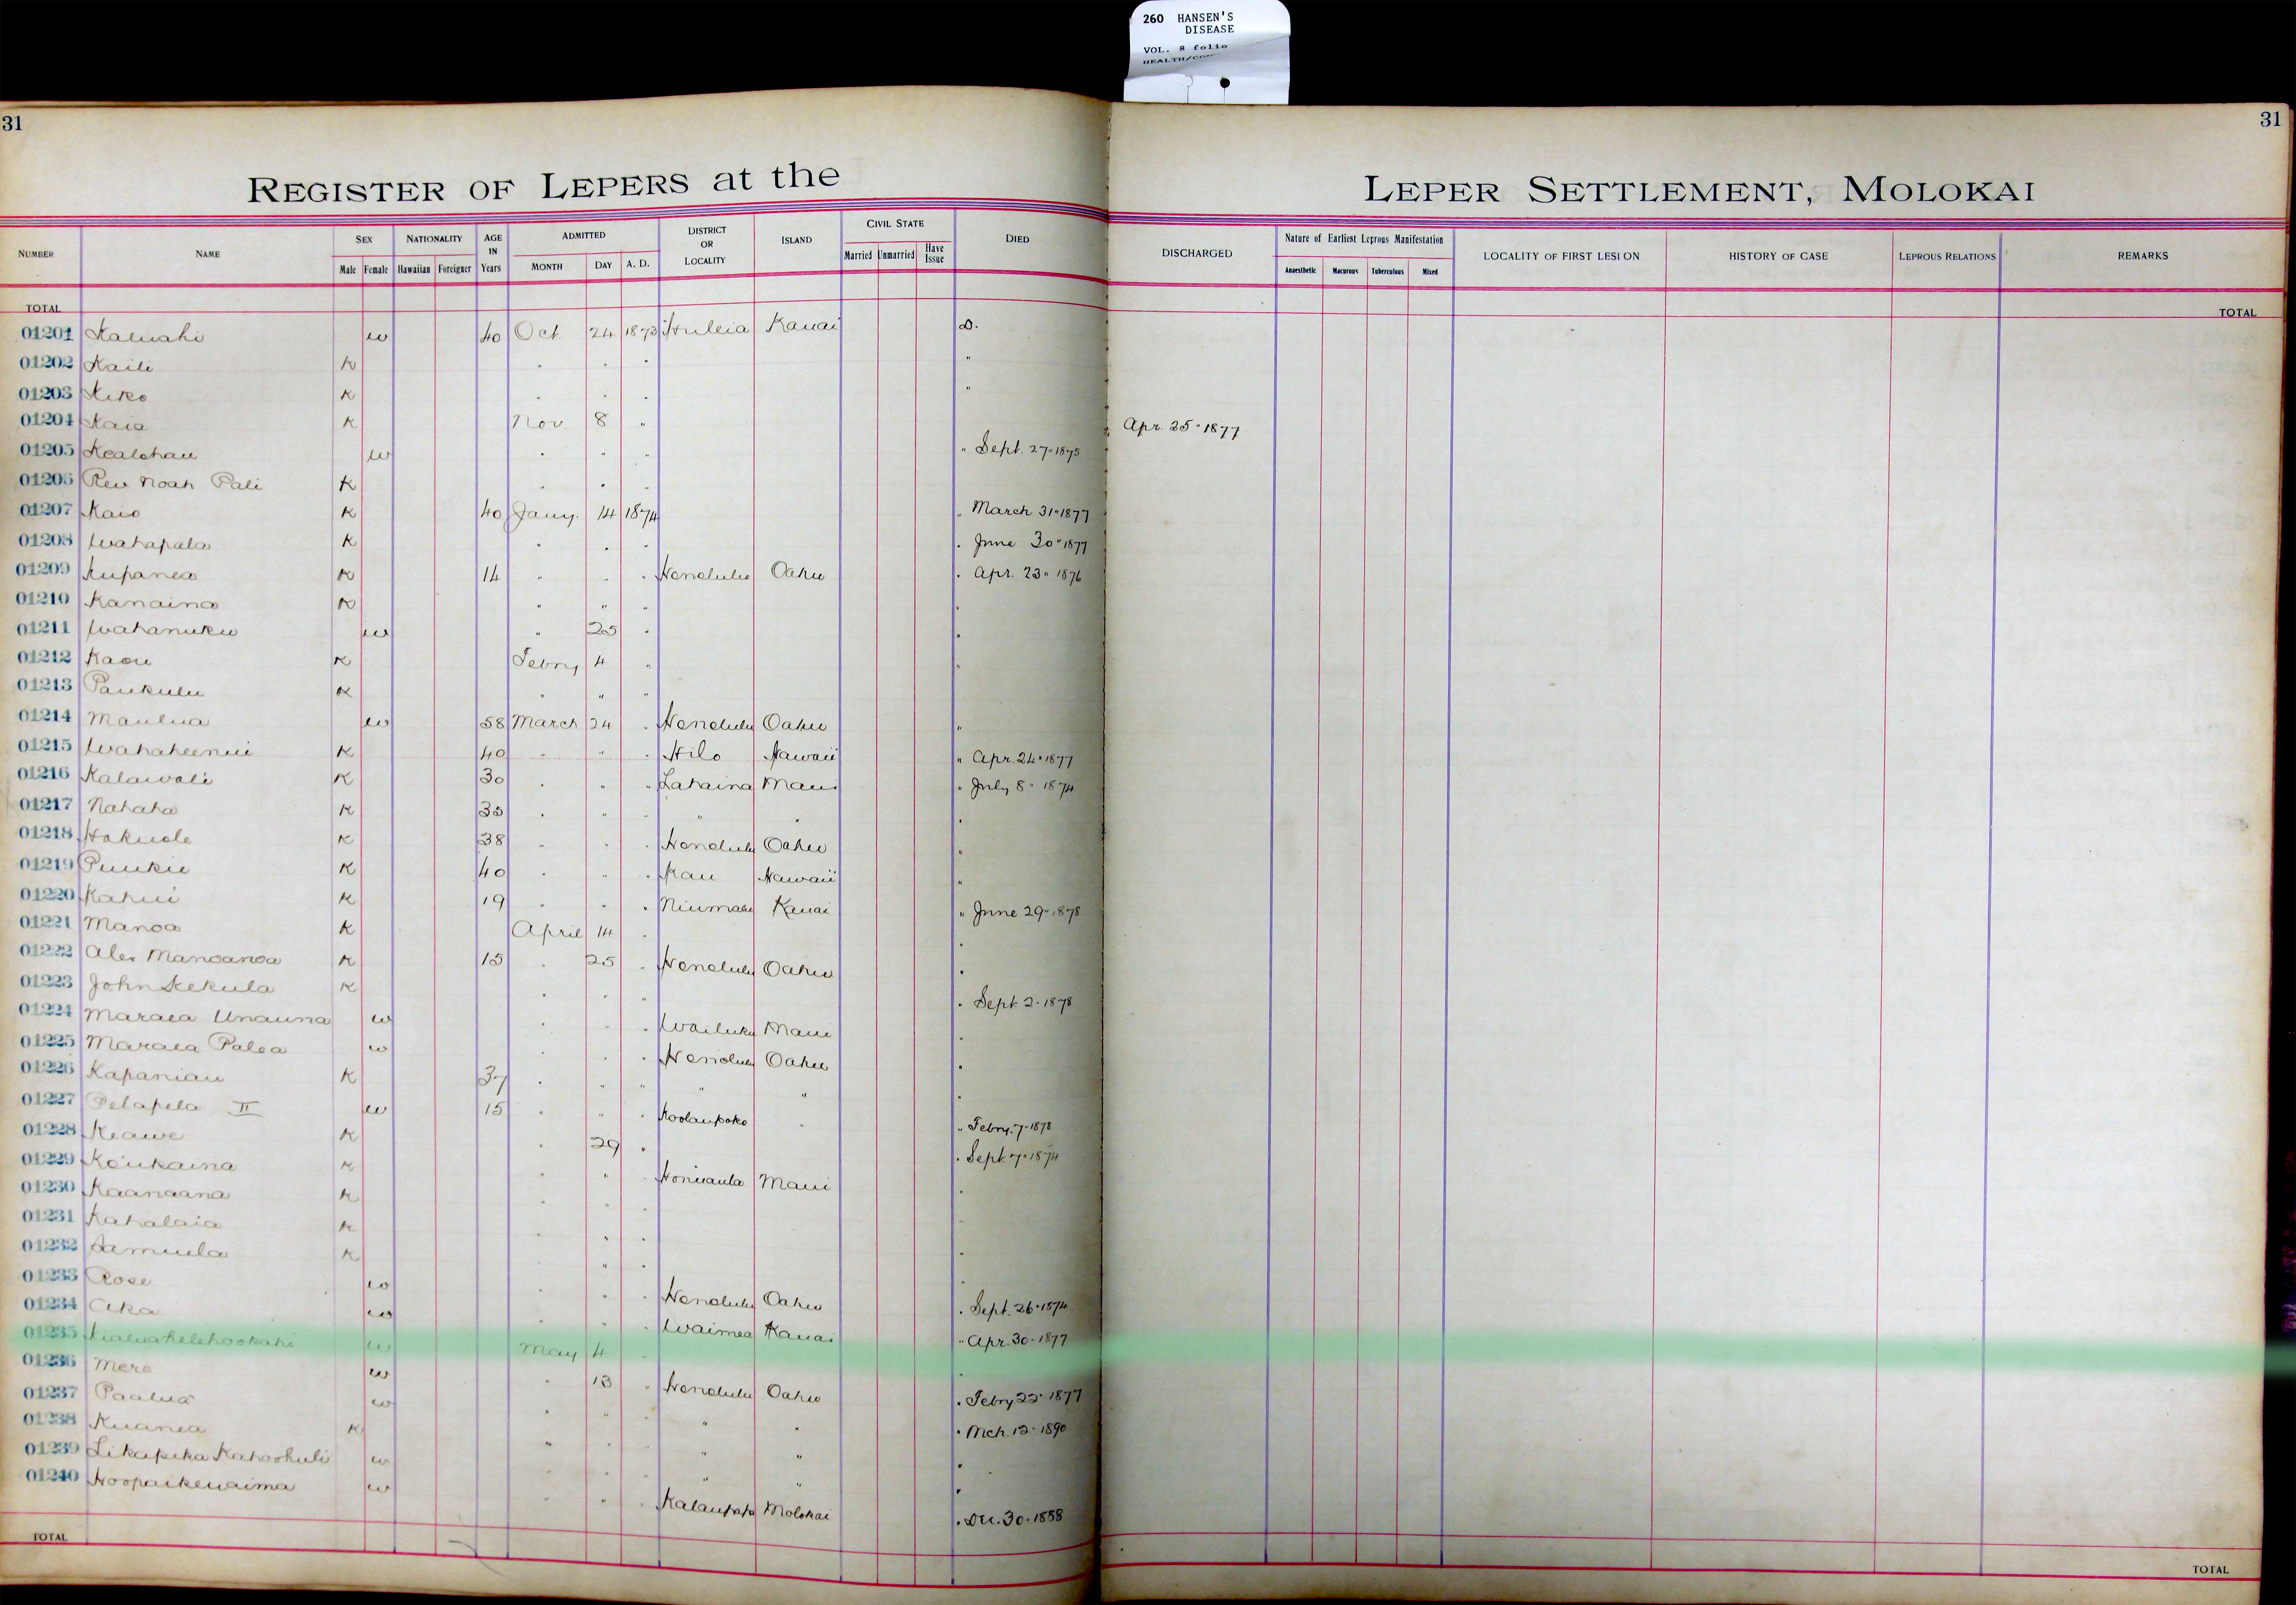 260 HANSEN'S
DISEASE
VOL. 8 folio
31
31
REGISTER OF LEPERS at the LEPER SETTLEMENT, MOLOKAI
NUMBER NAME SEX NATIONALITY AGE IN Years ADMITTED DISTRICT OR LOCALITY ISLAND CIVIL STATE DIED DISCHARGED Nature of Earliest Leprous Manifestation LOCALITY OF FIRST LESION HISTORY OF CASE LEPROUS RELATIONS REMARKS
Male Female Hawaiian Foreigner MONTH DAY A. D. Married Unmarried Have Issue Anaesthetic Macurous Tuberculous Mixed
TOTAL TOTAL
01201 Kaluahi w 40 Oct 24 1873 Huleia Kauai D.
01202 Kaili K " " " "
01203 Kiko K " " " "
01204 Kaia K Nov. 8 " Apr. 25" 1877
01205 Kealohau w " " " " Sept. 27" 1875
01206 Rev Noah Pali K " " "
01207 Kaio K 40 Jany. 14 1874 " March 31" 1877
01208 Wahapala K " " " " June 30" 1877
01209 Kupanea K 14 " " " Honolulu Oahu " Apr. 23" 1876
01210 Kanaina K " " " "
01211 Wahanuku w " 25 " "
01212 Kaou K Febry 4 " "
01213 Paukulu K " " "
01214 Maulua w 58 March 24 " Honolulu Oahu "
01215 Wahaheenui K 40 " " " Hilo Hawaii " Apr. 24" 1877
01216 Kalawali K 30 " " " Lahaina Maui " July 8" 1874
01217 Nahaha K 35 " " " " " "
01218 Hokuole K 38 " " " Honolulu Oahu "
01219 Puukie K 40 " " " Kau Hawaii "
01220 Kahui K 19 " " " Niumalu Kauai " June 29" 1878
01221 Manoa K April 14 " "
01222 Alex Manoanoa K 15 " 25 " Honolulu Oahu "
01223 John Kekula K " " " " Sept. 2" 1878
01224 Maraea Unauna w " " " Wailuku Maui "
01225 Maraea Palea w " " " Honolulu Oahu "
01226 Kapaniau K 37 " " " " " "
01227 Pelapela II w 15 " " " Koolaupoko " " Febry. 7" 1878
01228 Keawe K " 29 " " Sept. 7" 1874
01229 Koukaina K " " " Honuaula Maui "
01230 Kaanaana K " " "
01231 Kahalaia K " " "
01232 Samuela K " " "
01233 Rose w " " " Honolulu Oahu " Sept. 26" 1874
01234 Aka w " " " Waimea Kauai " Apr. 30" 1877
01235 w May 4 " "
01236 Mere w " 13 " Honolulu Oahu " Febry 22" 1877
01237 Paalua w " " " " " " Mch. 12" 1890
01238 Kuanea K " " " " " "
01239 Likapeka Kahoohuli w " " " " " "
01240 Hoopaikewaima w " " " Kalaupapa Molokai " Dec. 30" 1888
TOTAL TOTAL